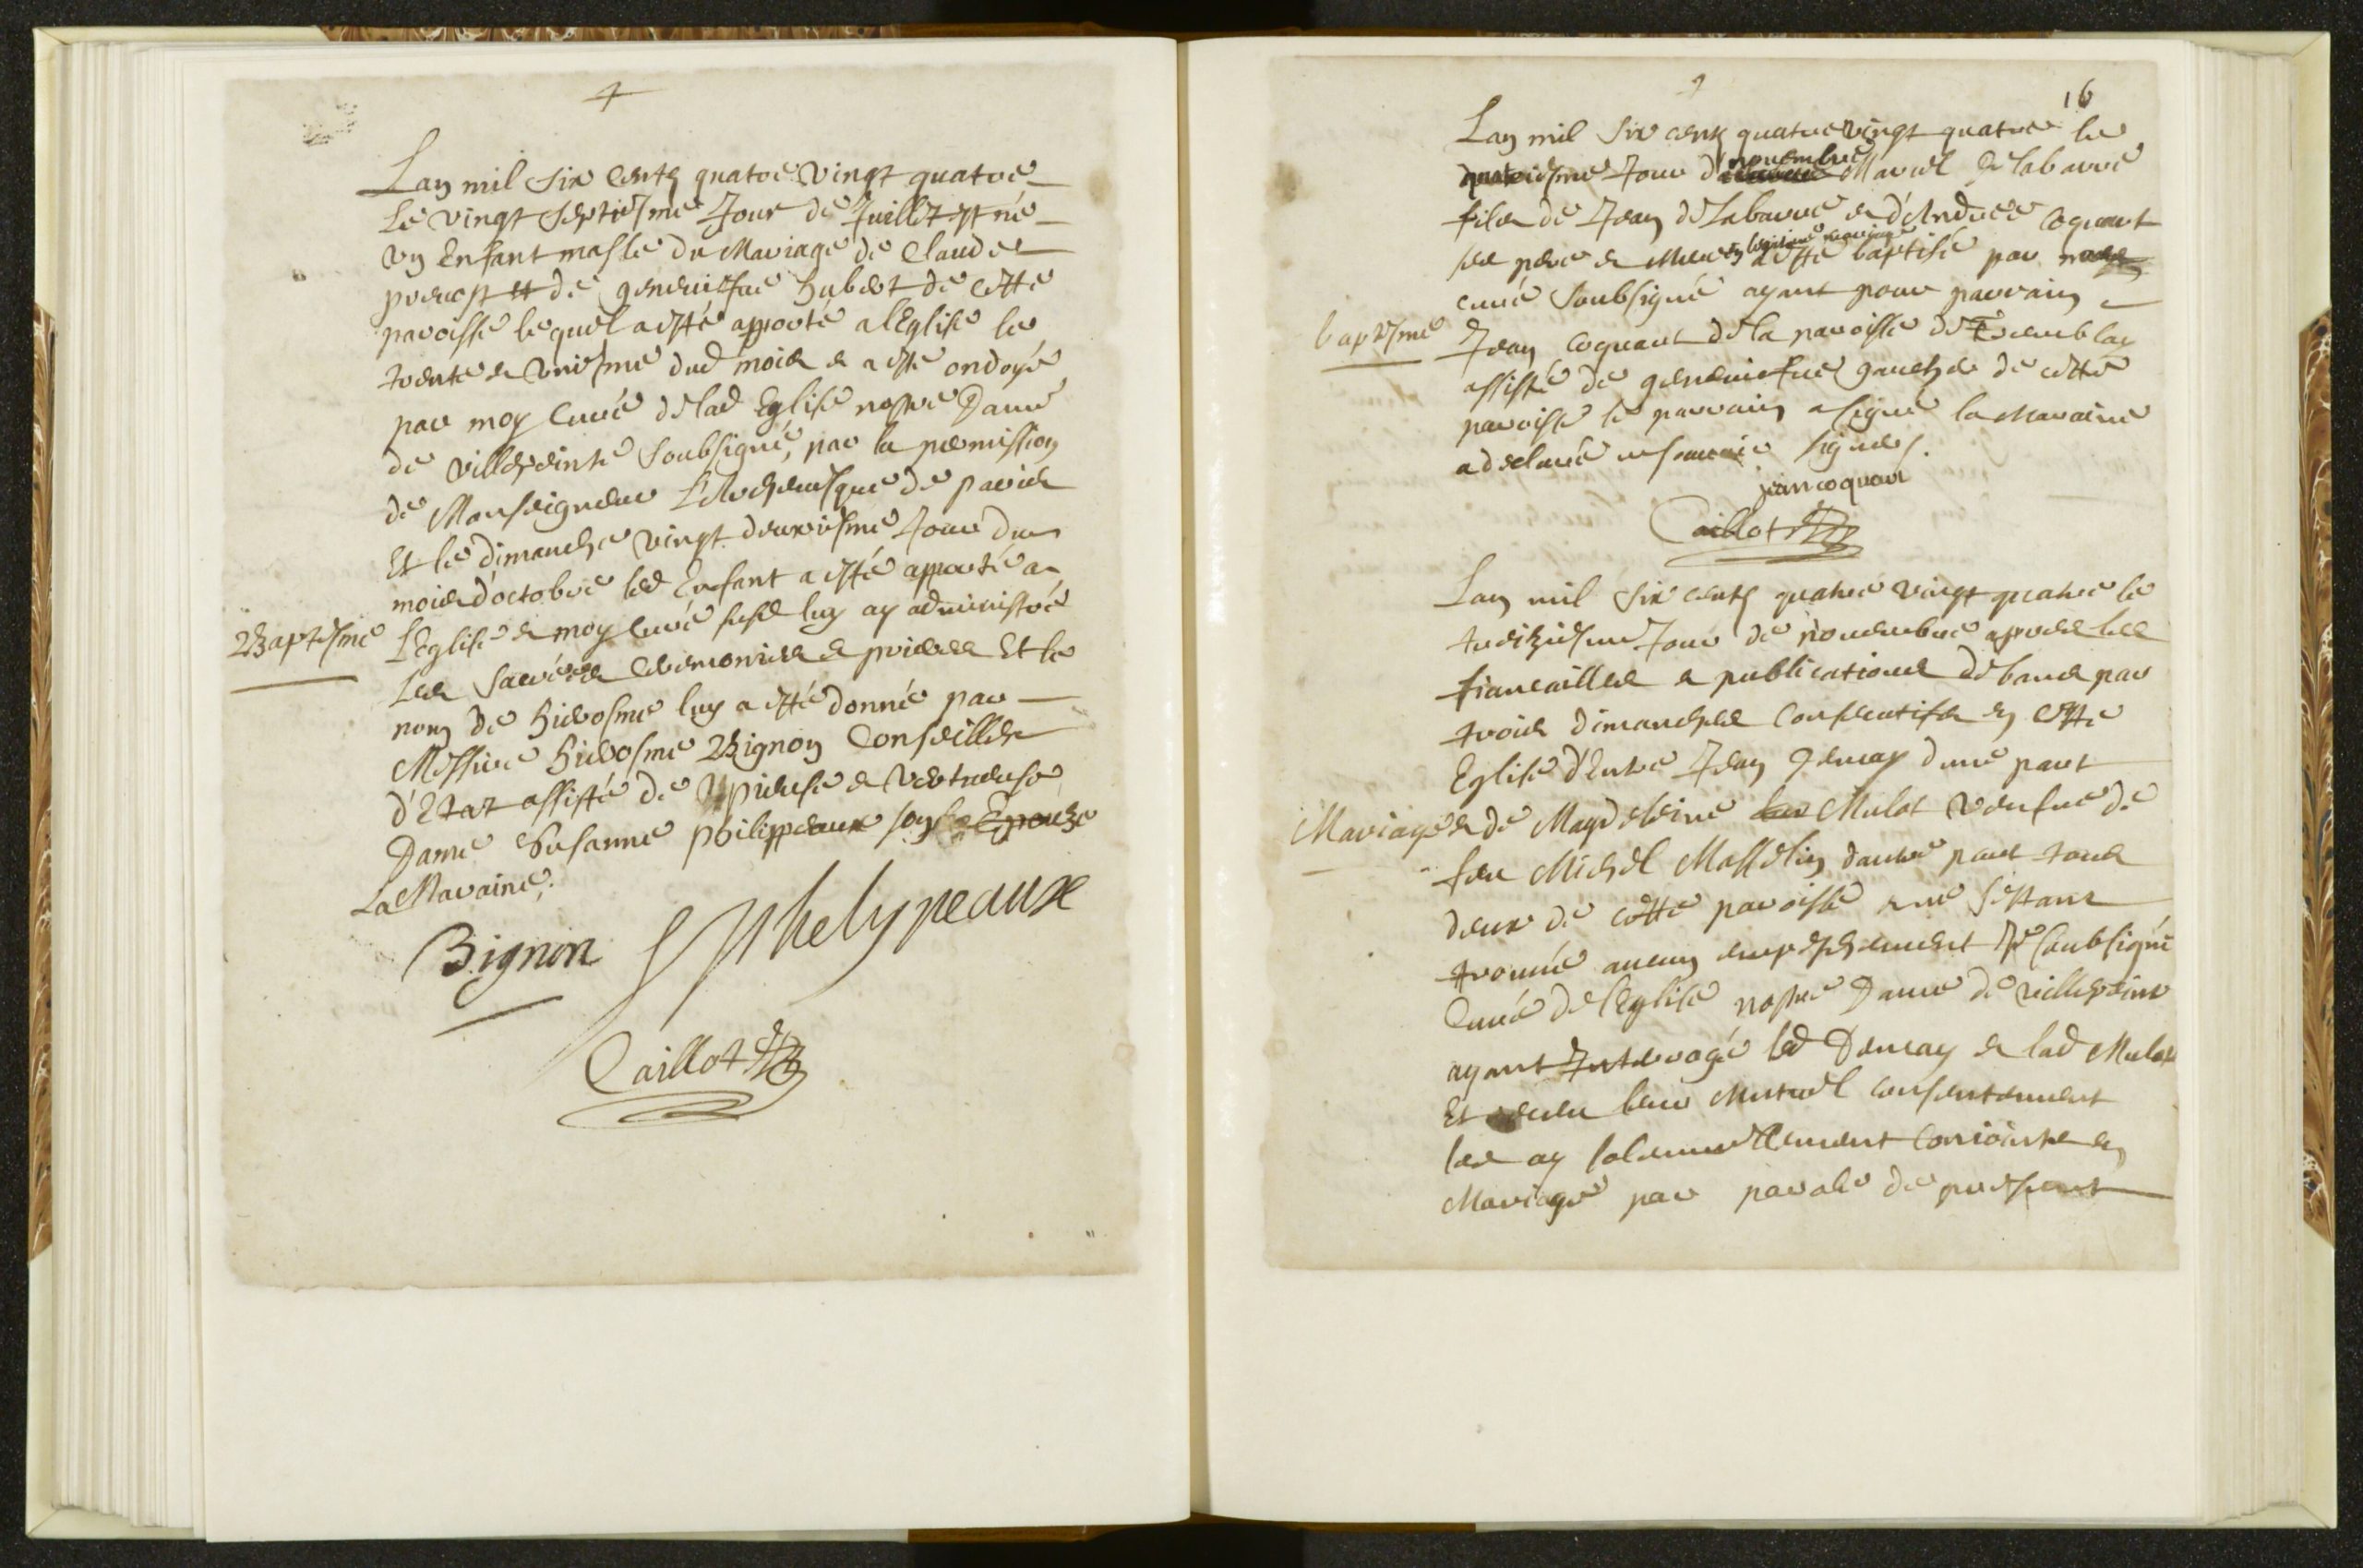 Lan mil six cents quatre vingt quatre
Le vingt septiesme Jour de Juillet est né
un Enfant masle du Mariage de Claude
prevost et de geneviefve hubert de cette
paroisse lequel a esté apporté a lEglise le
trente et uniesme dud mois et a esté ondoyé
par moy Curé de lad Eglise nostre Dame
de villepeinte soubsigné, par la permission
de Monseigneur L'Archevesque de paris
Et le dimanche vingt deuxiesme Jour du
mois d'octobre led Enfant a esté apporté a
Baptesme
L'Eglise et moy Curé susd luy ay administré
Les sacrées ceremonies et prieres Et le
nom de hierosme luy a esté donné par
Messire hierosme Bignon Conseiller
d'Etat assisté de pieuse et vertueuse
Dame Susanne philippeaux son Epouze
La Maraine.
Bignon Sphelypeaux
Caillot
16
Lan mil six cents quatre vingt quatre le
jour de novembre Marcel delabarre
fils de Jean de Labarre et d'Andrée Coquart
ses pere et Mere en legitime mariage a esté baptisé par
curé soubsigné ayant pour parrain
baptesme
Jean Coquart de la paroisse de Tremblay
assisté de geneviefve gaucher de cette
paroisse le parrain a signé la Maraine
a declaré ne sçavoir signer.
jean coquart
Caillot
Lan mil six cents quatre vingt quatre le
treiziesme Jour de novembre apres les
fiancailles et publications de bans par
trois dimanches Consecutifs en cette
Eglise d'Entre Jean Demay dune part
Mariage
et de Magdeleine Mulot veufue de
feu Michel Masselin dautre part tous
deux de cette paroisse et ne sestant
trouvé aucun empeschement Je soubsigné
Curé de lEglise nostre Dame de villepeinte
ayant Interrogé led Demay et lad Mulot
Et receu leur Mutuel consentement
les ay solemnellement conjoints en
Mariage par parole de present